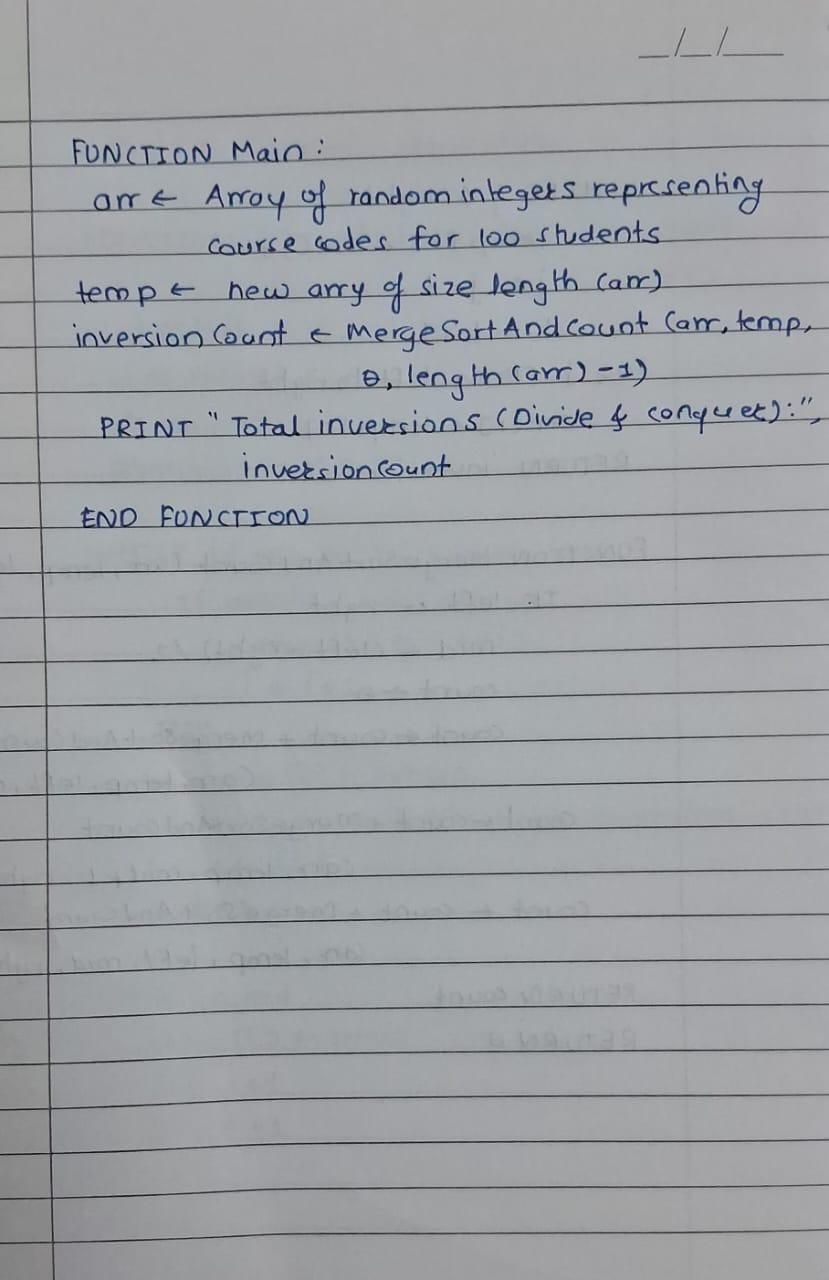 _/_/__
FUNCTION Main:
arr ← Array of random integers representing
course codes for 100 students
temp ← new arry of size length (arr)
inversion Count ← Merge Sort And count (arr, temp,
0, length (arr) -1)
PRINT "Total inversions (Divide & conquer):",
inversion count
END FUNCTION